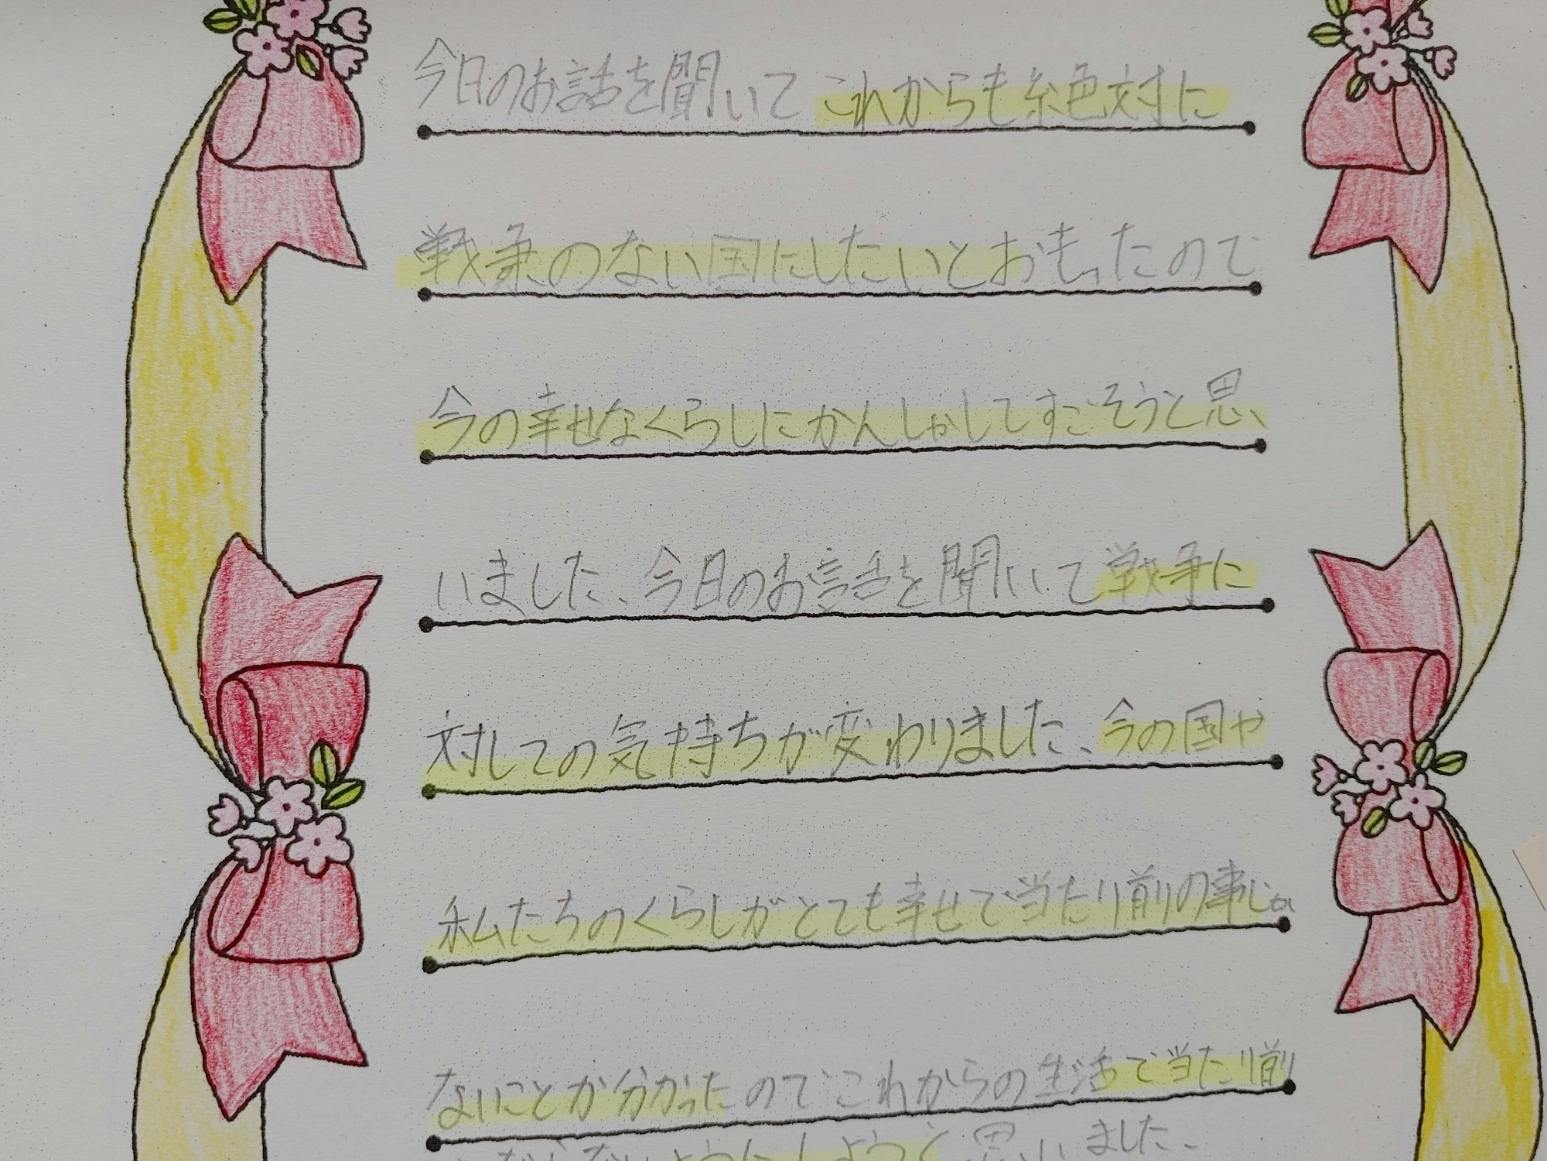 今日のお話を聞いてこれからも絶対に
戦争のない国にしたいとおもったので
今の幸せなくらしにかんしゃしてすごそうと思
いました、今日のお話を聞いて戦争に
対しての気持ちが変わりました、今の国や
私たちのくらしがとても幸せで当たり前の事じゃ
ないことが分かったのでこれからの生活で当たり前
ならないようにしようと思いました、